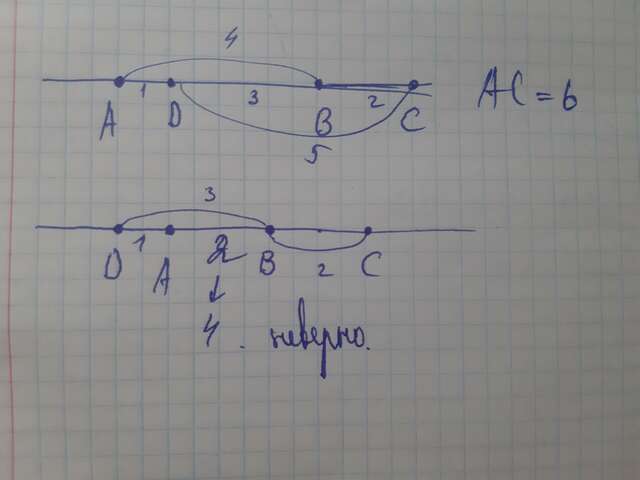 4
1 3 2 AC = 6
A D B C
5
3
1 2 2
D A B C
4. неверно.